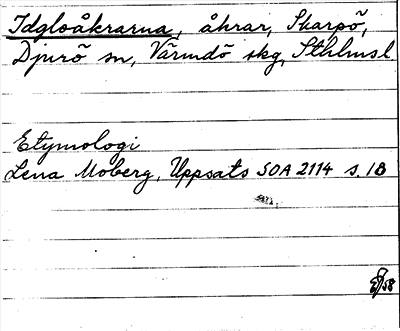 Idgloåkrarna, åkrar, Skarpö,
Djurö sn, Värmdö skg, Sthlmsl.
Etymologi
Lena Moberg, Uppsats SOA 2114 s. 18